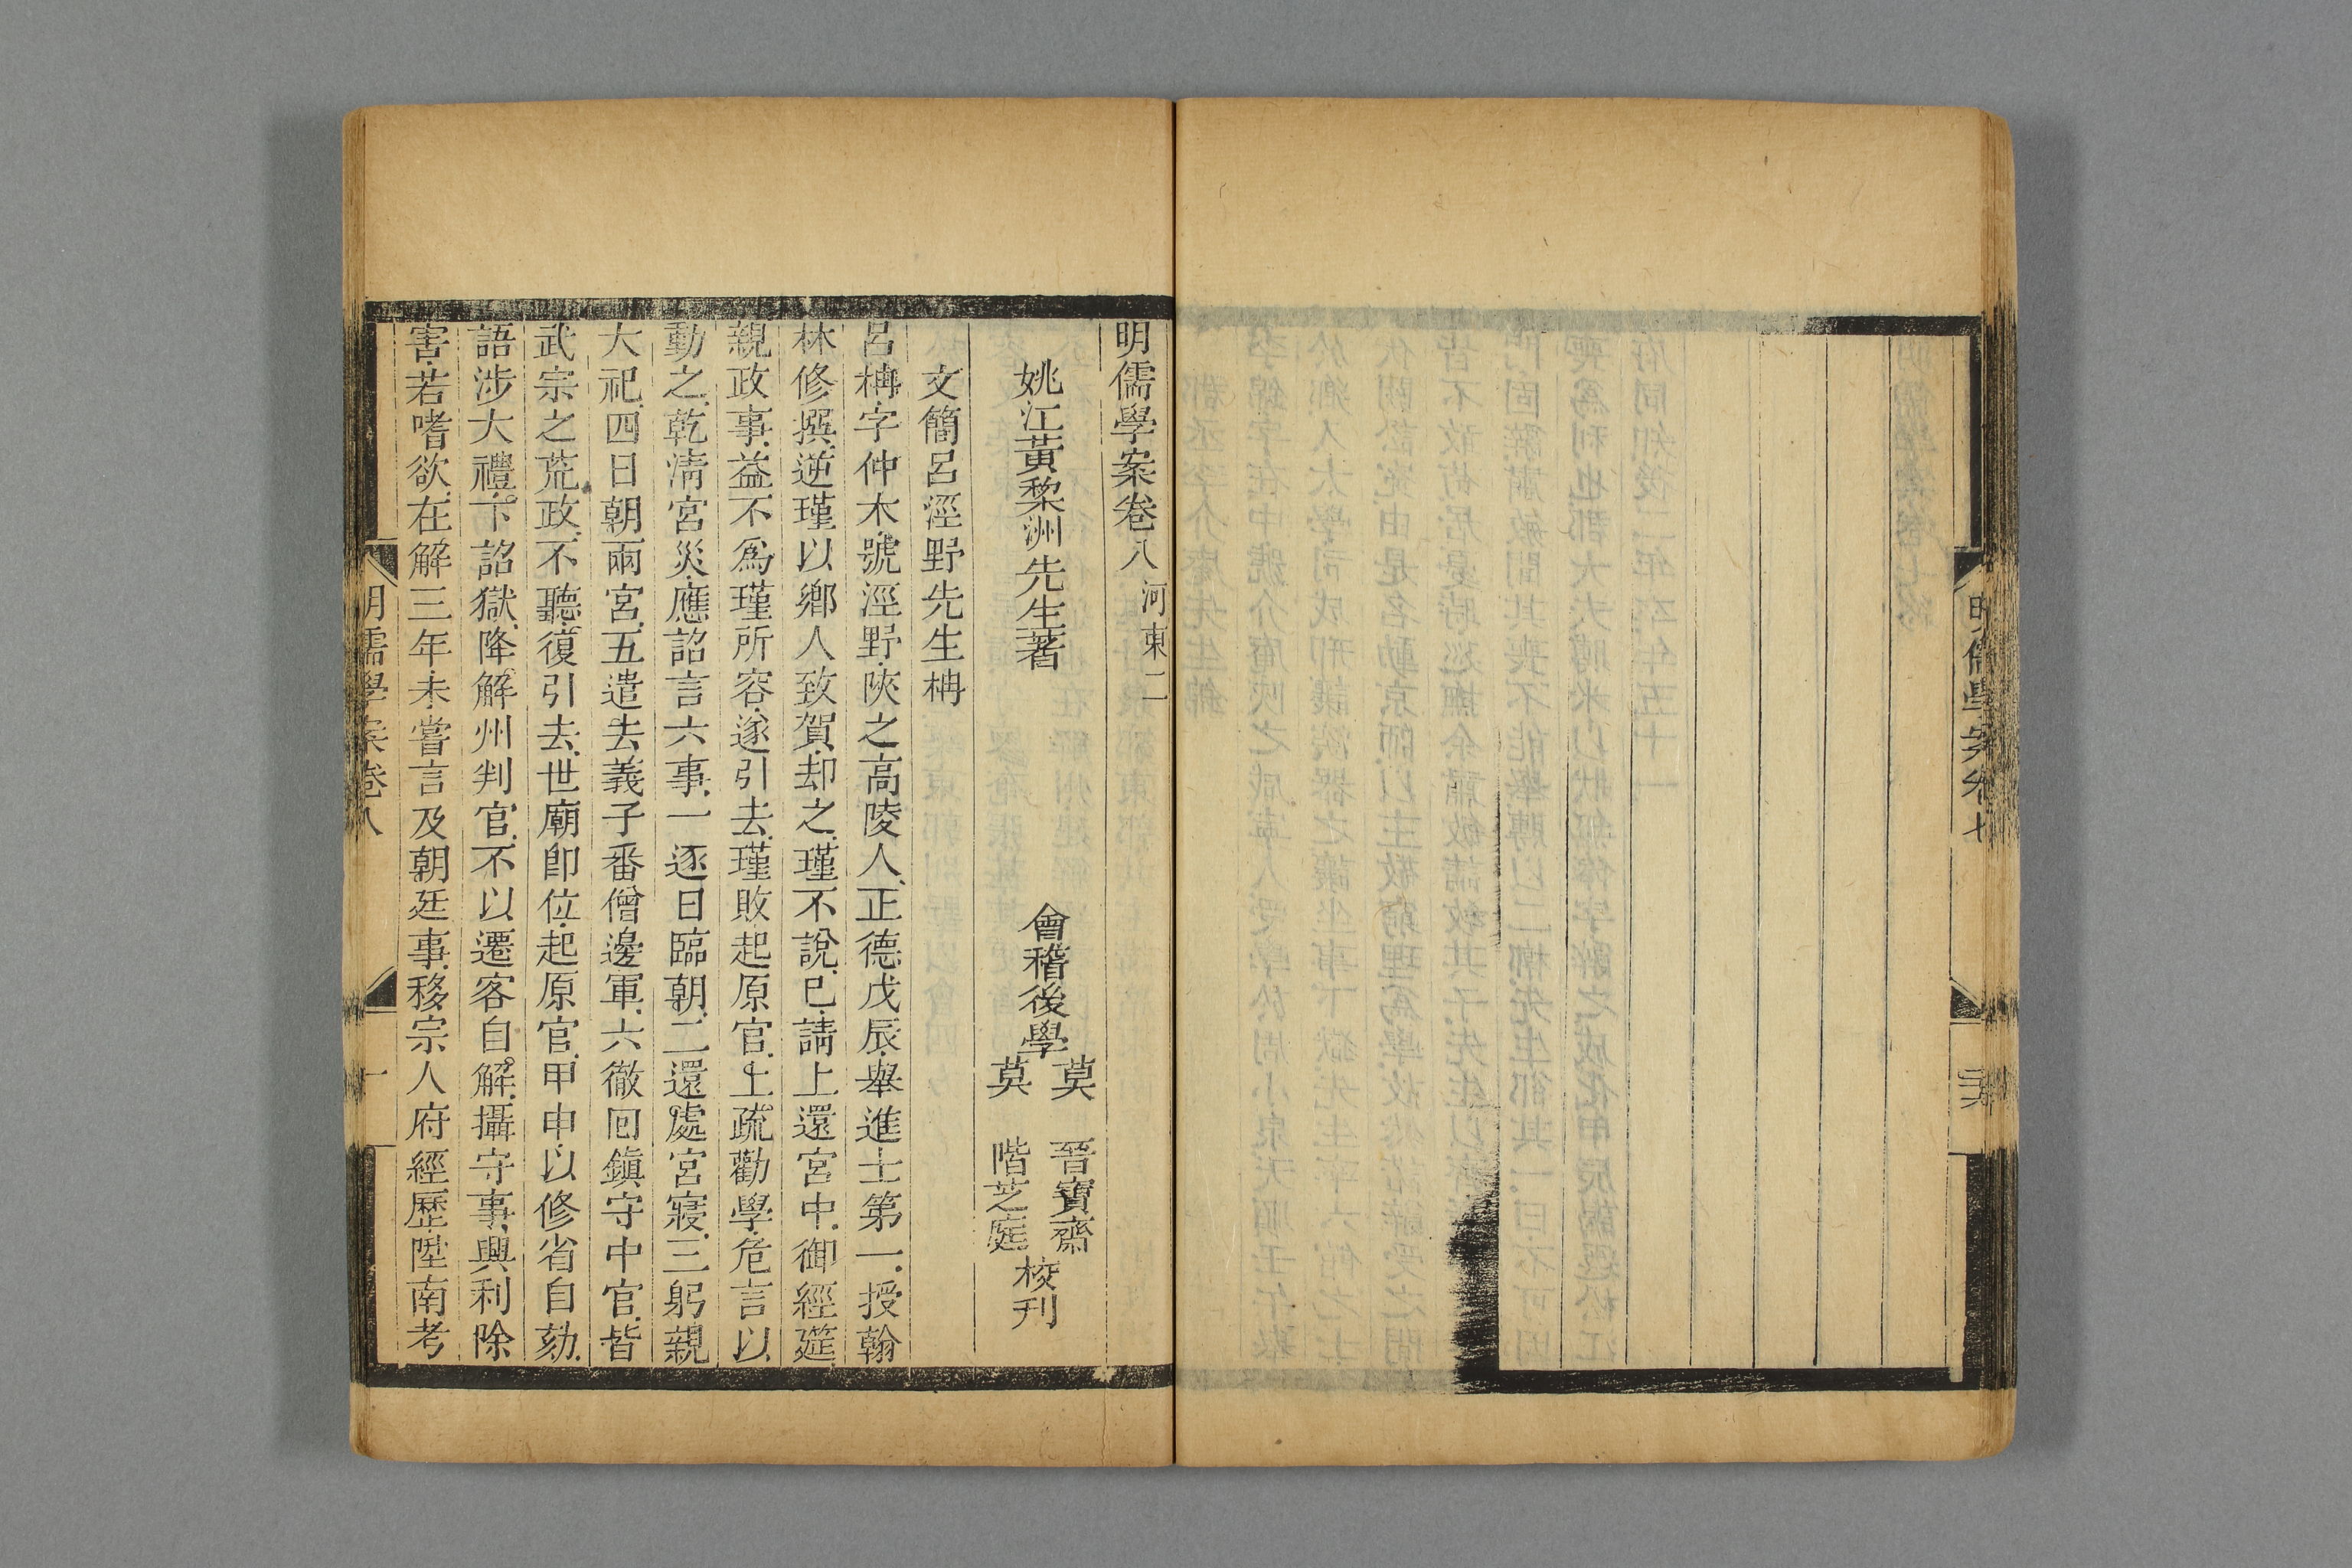 明儒學案卷七
明儒學案卷八 河東二
姚江黃黎洲先生著 會稽後學 莫 晉寶齋 莫 階芝庭 校刊
文簡呂涇野先生柟
呂柟字仲木號涇野陜之高陵人正德戊辰舉進士第一授翰
林修撰逆瑾以鄉人致賀却之瑾不說已請上還宮中御經筵
親政事益不爲瑾所容遂引去瑾敗起原官上疏勸學危言以
動之乾淸宮災應詔言六事一逐日臨朝二還處宮寢三躬親
大祀四日朝兩宮五遣去義子番僧邊軍六徹囘鎭守中官皆
武宗之荒政不聽復引去世廟卽位起原官甲申以修省自劾
語涉大禮下詔獄降解州判官不以遷客自解攝守事興利除
害若嗜欲在解三年未嘗言及朝廷事移宗人府經歷陞南考
明儒學案卷八
一